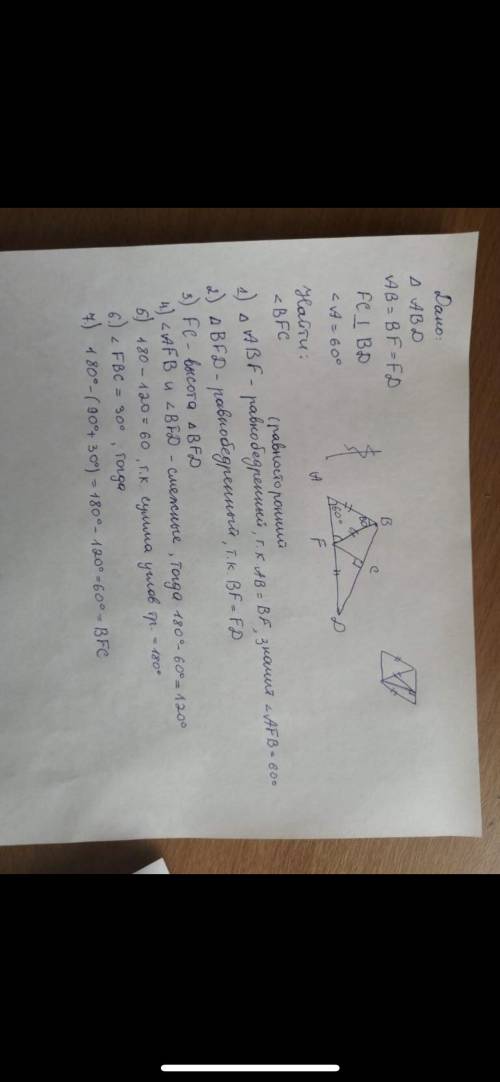 Дано:
Δ ABD
AB = BF = FD
FC ⊥ BD
∠A = 60°
Найти:
∠BFC
B
C
60°
A
F
D
(равносторонний
1) Δ ABF - равнобедренный, т.к. AB = BF, значит ∠AFB = 60°
2) Δ BFD - равнобедренный, т.к. BF = FD
3) FC - высота Δ BFD
4) ∠AFB и ∠BFD - смежные, тогда 180° - 60° = 120°
5) 180 - 120 = 60, т.к. сумма углов тр. = 180°
6) ∠FBC = 30°, тогда
7) 180° - (90° + 30°) = 180° - 120° = 60° = BFC